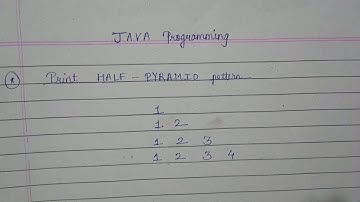 JAVA Programming
Q Print HALF - PYRAMID pattern
1
1 2
1 2 3
1 2 3 4